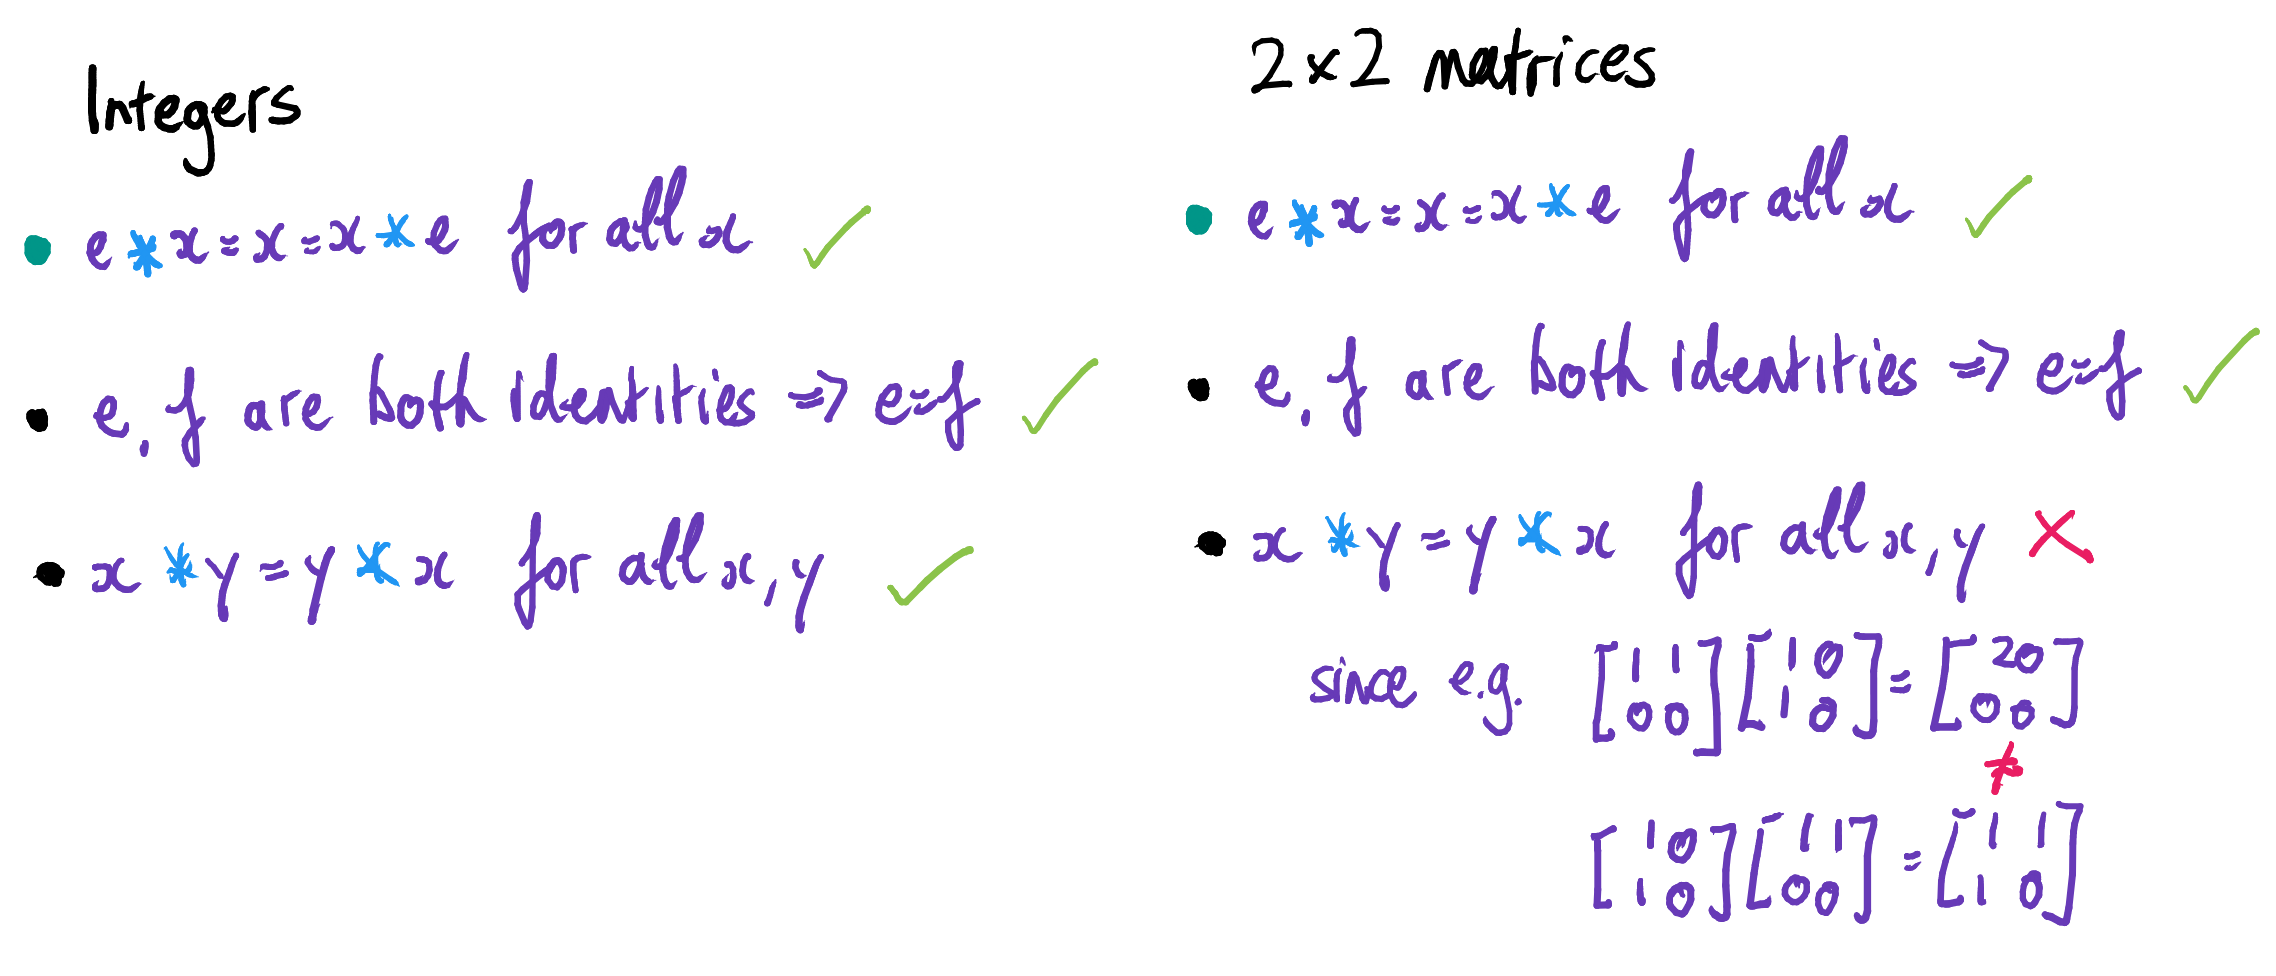 Integers
• e * x = x = x * e for all x ✓
• e, f are both identities => e=f ✓
• x * y = y * x for all x, y ✓
2×2 matrices
• e * x = x = x * e for all x ✓
• e, f are both identities => e=f ✓
• x * y = y * x for all x, y ✗
since e.g. [1 1; 0 0] [1 0; 1 0] = [2 0; 0 0]
≠
[1 0; 1 0] [1 1; 0 0] = [1 1; 1 0]